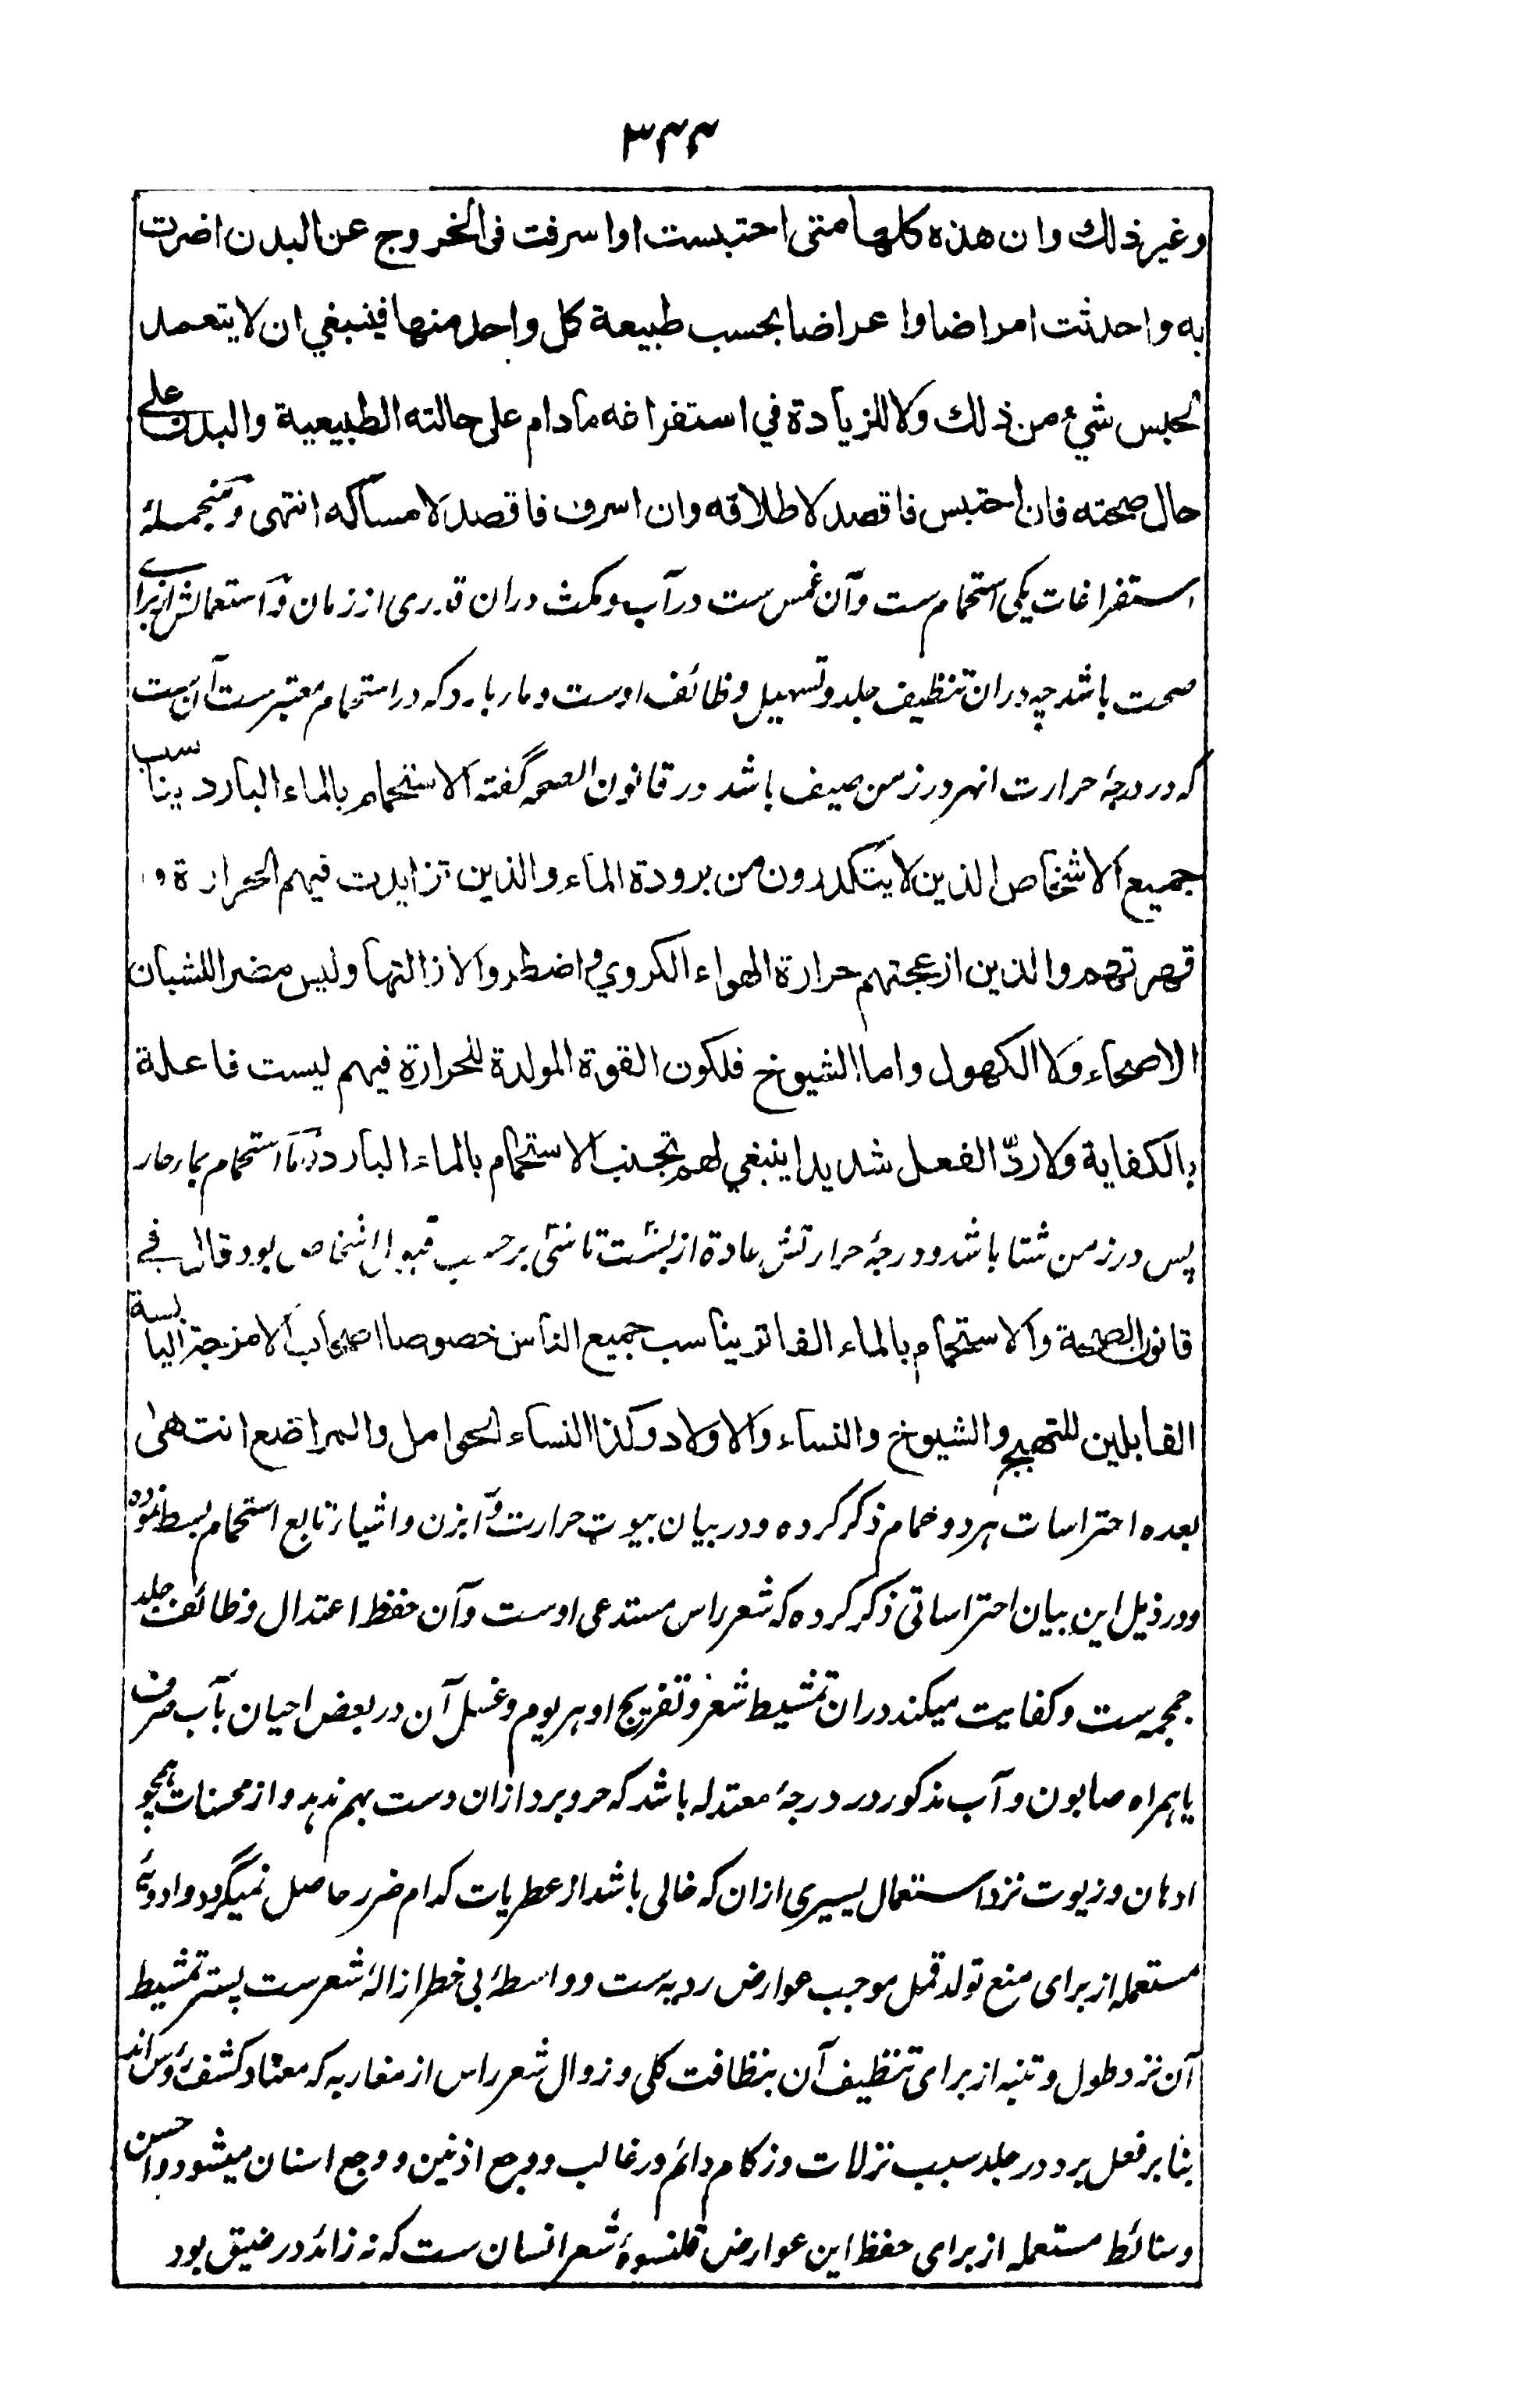 ۳۴۴
وغیر ذلك وان هذه كلها متی احتبست او اسرفت فی الخروج عن البدن اضرت
به واحدثت امراضا واعراضا بحسب طبیعة كل واحد منها فینبغی ان لا یتعمد
لحبس شیء من ذلك ولا للزیادة فی استفراغه مادام علی حالته الطبیعیة والبدن علی
حال صحته فان احتبس فاقصد لاطلاقه وان اسرف فاقصد لامساكه انتهی و منجملۀ
استفراغات یکی استحمام ست و آن غمس ست در آب و مکث دران قدری از زمان و استعمالش از برای
صحت باشد چه دران تنظیف جلد و تسهیل وظائف اوست و مار بارد که در استحمام معتبرست آن ست
که در درجۀ حرارت انهر در زمن صیف باشد در قانون الصحه گفته الاستحمام بالماء البارد یناسب
جمیع الاشخاص الذین لا یتكدرون من برودة الماء والذین تزایدت فیهم الحرارة و
قهرتهم والذین ازعجتهم حرارة الهواء الكروی و اضطروا لازالتها ولیس مضرا للشبان
الاصحاء ولا الكهول واما الشیوخ فلكون القوة المولدة للحرارة فیهم لیست فاعلة
بالكفایة ولا ردّ الفعل شدیدا ینبغی لهم تجنب الاستحمام بالماء البارد و اما استحمام بمار حار
پس در زمن شتا باشد و درجۀ حرارتش عادة از بست تا سی بر حسب قبول اشخاص بود قال فی
قانون الصحة والاستحمام بالماء الفاتر یناسب جمیع الناس خصوصا اصحاب الامزجة الیابسة
القابلین للتهیج والشیوخ والنساء والاولاد وكذا النساء الحوامل والمراضع انتهی
بعده احتراسات هر دو حمام ذکر کرده و در بیان بیوت حرارت و ابزن و اشیاء تابع استحمام بسط نموده
و در ذیل این بیان احتراساتی ذکر کرده که شعر راس مستدعی اوست و آن حفظ اعتدال وظائف جلد
جمجمه ست و کفایت میکند دران تمشیط شعر و تفریج او هر یوم و غسل آن در بعض احیان بآب صرف
یا همراه صابون و آب مذکور در درجۀ معتدله باشد که حر و برد ازان دست بهم ندهد و از محسنات همچو
ادهان و زیوت نزد استعمال یسیری ازان که خالی باشد از عطریات کدام ضرر حاصل نمیگردد و ادویۀ
مستعمله از برای منع تولد قمل موجب عوارض ردیه ست و واسطۀ بی خطر ازالۀ شعرست پستر تمشیط
آن نزد طول و تنبه از برای تنظیف آن بنظافت کلی و زوال شعر راس از مغاربه که معتاد کشف رؤس اند
بنا بر فعل برد در جلد سبب نزلات و زکام دائم در غالب و وجع اذنین و وجع اسنان میشود و احسن
وسائط مستعمله از برای حفظ این عوارض قلنسوۀ شعر انسان ست که نه زائد در ضیق بود